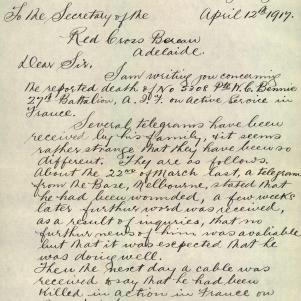 To the Secretary of the April 12th 1917.
Red Cross Bureau
Adelaide.
Dear Sir,
I am writing you concerning
the reported death of No 5308 Pte W. C. Bennie
27th Battalion, A.I.F. on Active Service in
France.
Several telegrams have been
received by his family, & it seems
rather strange that they have been so
different. They are as follows.
About the 22nd of March last, a telegram
from the Base, Melbourne, stated that
he had been wounded, a few week's
later further word was received,
as a result of inquiries, that no
further news of him was avaliable
but that it was exspected that he
was doing well.
Then the next day a cable was
received to say that he had been
killed in action in France on